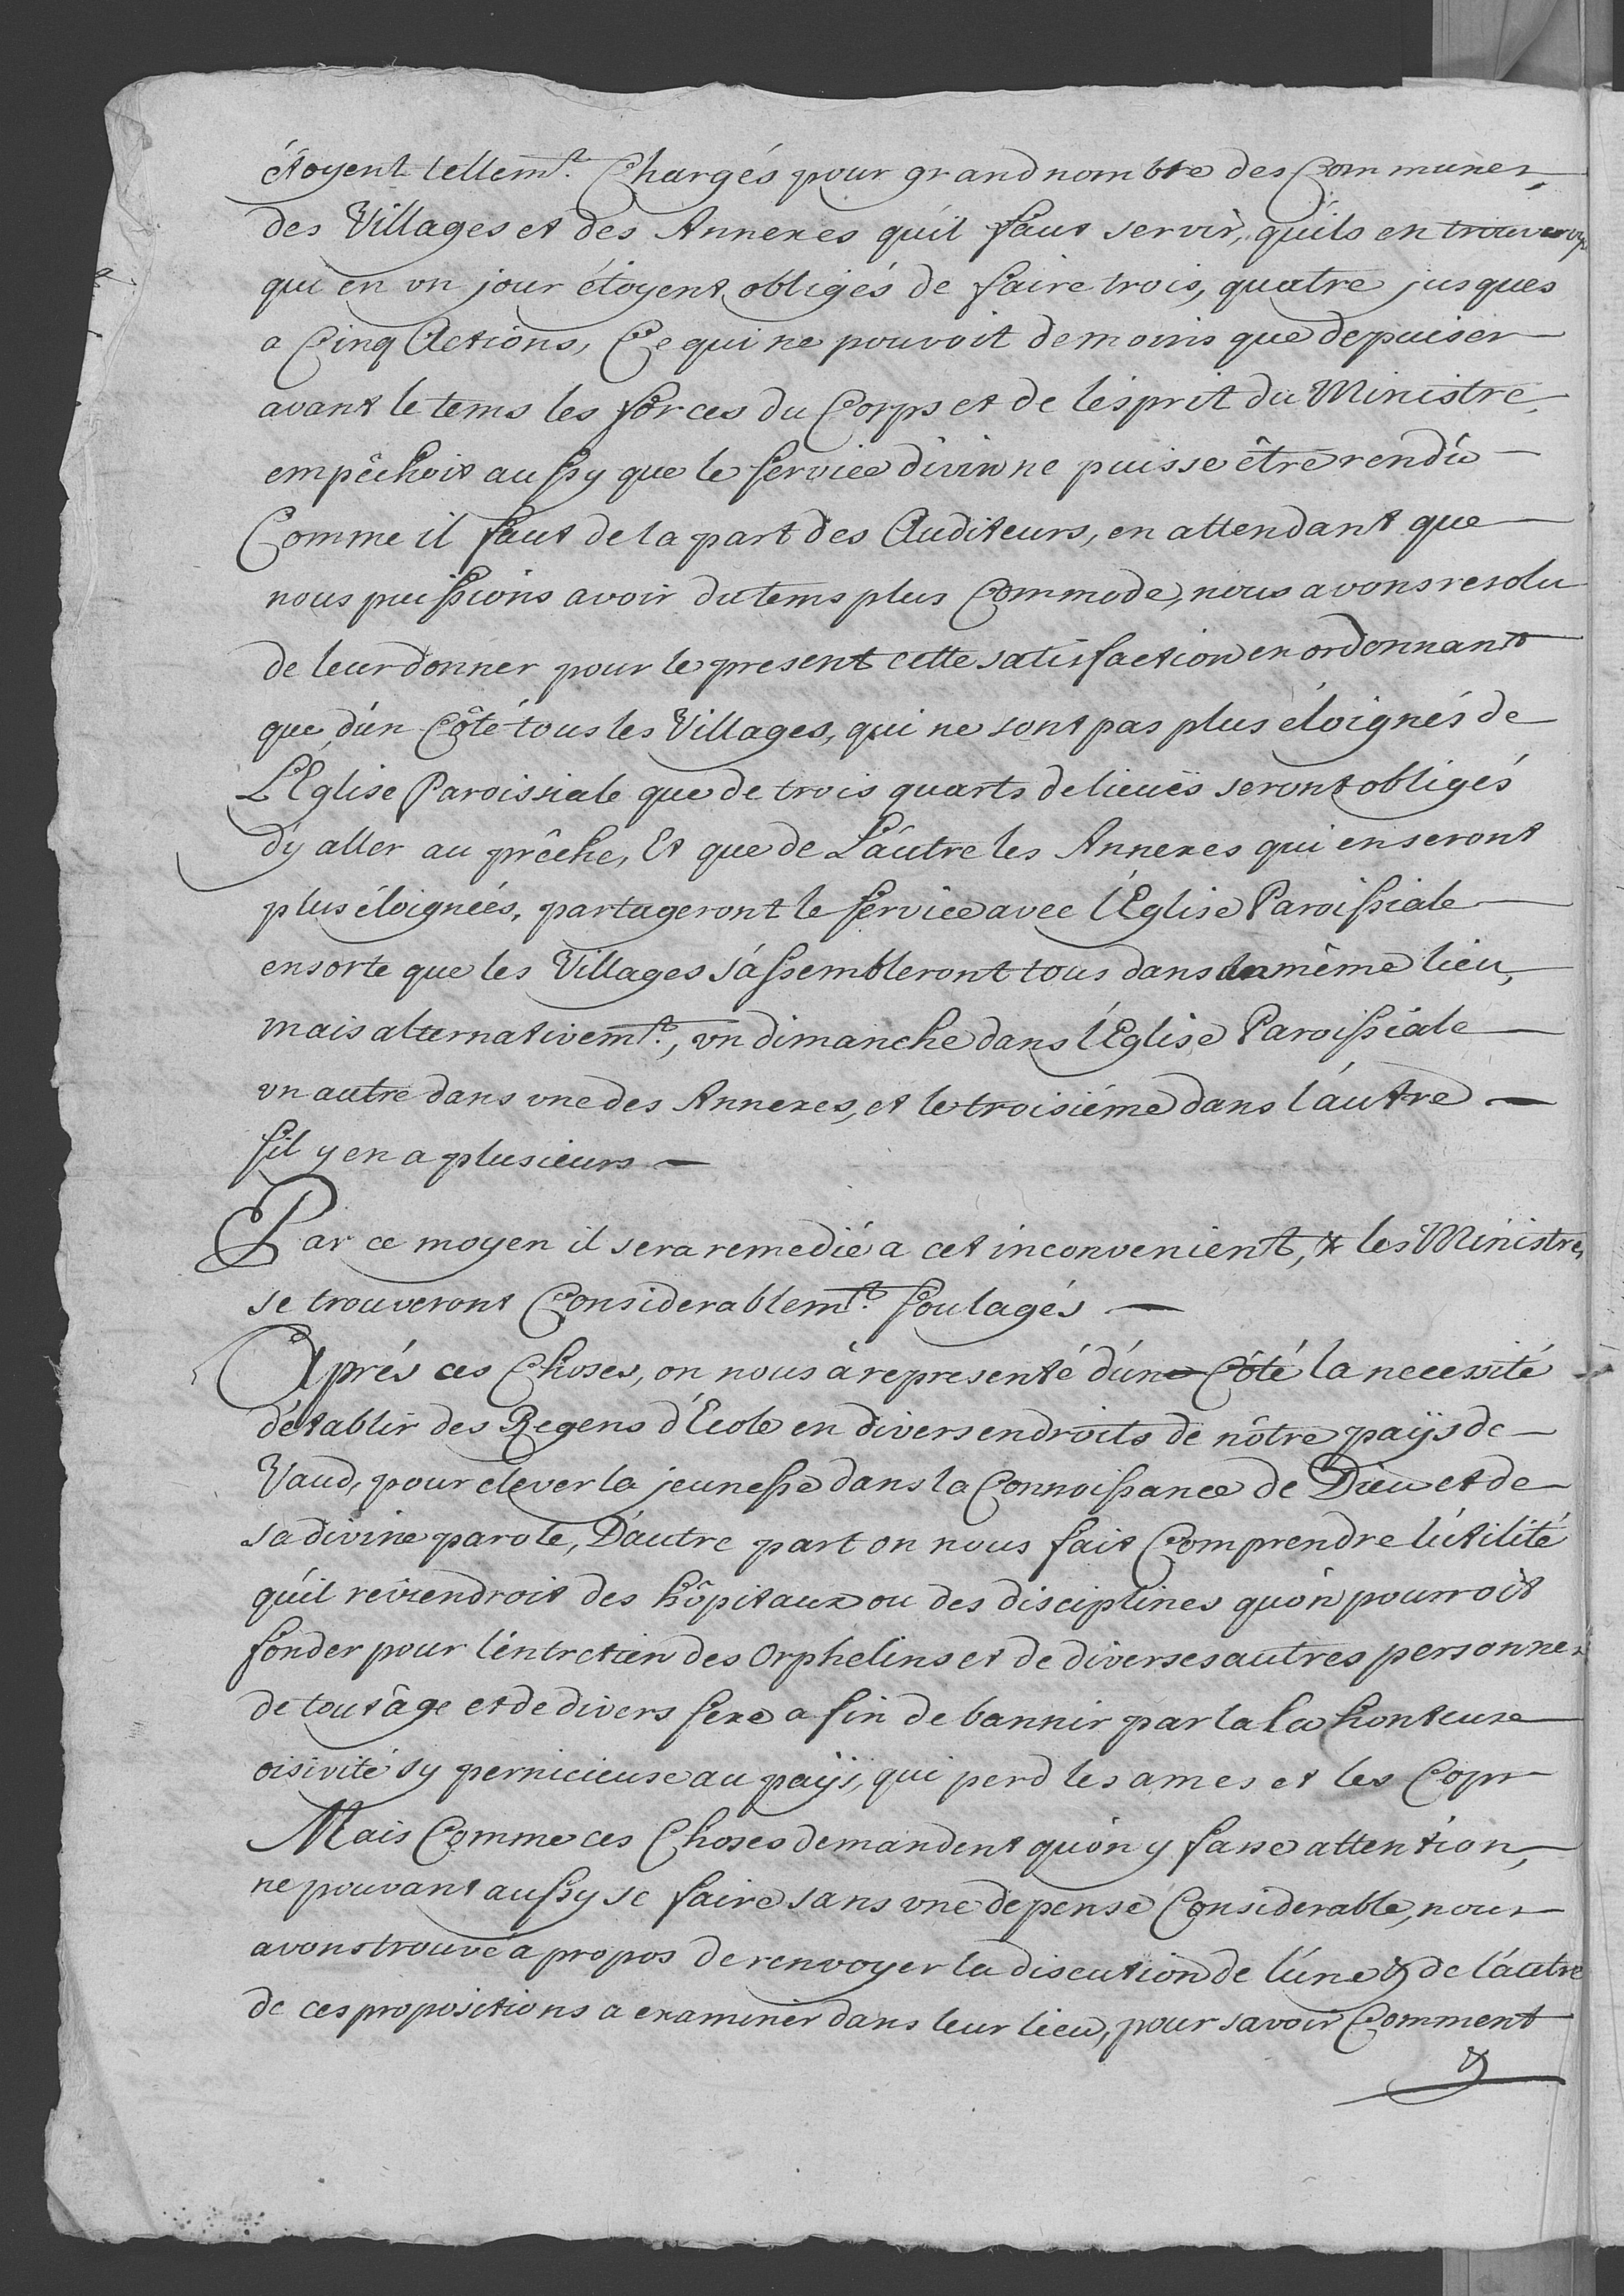 étoyent tellemt. Chargés pour grand nombre des Communes,
des Villages et des Annexes qu'il faut servir, qu'ils en
qui en un jour étoyent obligés de faire trois, quatre jusques
a Cinq Actions, Ce qui ne pouvoit de moins que depuiser
avant le tems les forces du Corps et de l'esprit du Ministre,
empêchoit aussy que le service divin ne puisse être rendû
Comme il faut de la part des Auditeurs, en attendant que
nous puissions avoir du tems plus Commode, nous avons resolu
de leur donner pour le present cette satisfaction en ordonnant
que d'un Côté tous les Villages, qui ne sont pas plus éloignés de
L'Eglise Paroissiale que de trois quarts de lieuës seront obligés
d'y aller au prêche, Et que de L'autre les Annexes qui en seront
plus éloignées, partageront le service avec l'Eglise Paroissiale
ensorte que les Villages s'assembleront tous dans un même lieu,
mais alternativemt., un dimanche dans l'Eglise Paroissiale
un autre dans une des Annexes, et le troisiéme dans l'autre
s'il y en a plusieurs
Par ce moyen il sera remedié a cet inconvenient, & les Ministres
se trouveront Considerablemt. soulagés
Aprés ces Choses, on nous à representé d'une Côté la necessité
d'etablir des Regens d'Ecole en divers endroits de nôtre païs de
Vaud, pour elever la jeunesse dans la Connoissance de Dieu et de
sa divine parole, D'autre part on nous fait Comprendre l'utilité
qu'il reviendroit des hôpitaux ou des disciplines qu'on pourroit
fonder pour l'entretien des Orphelins et de diverses autres personnes
de tout âge et de divers sexe a fin de bannir par la la honteuse
oisivité sy pernicieuse au païs, qui perd les ames et les Coprs
Mais Comme ces Choses demandent qu'on y fasse attention,
ne pouvant aussy se faire sans une depense Considerable, nous
avons trouvé a propos de renvoyer la discution de l'une & de l'autre
de ces propositions a examiner dans leur lieu, pour savoir Comment
&